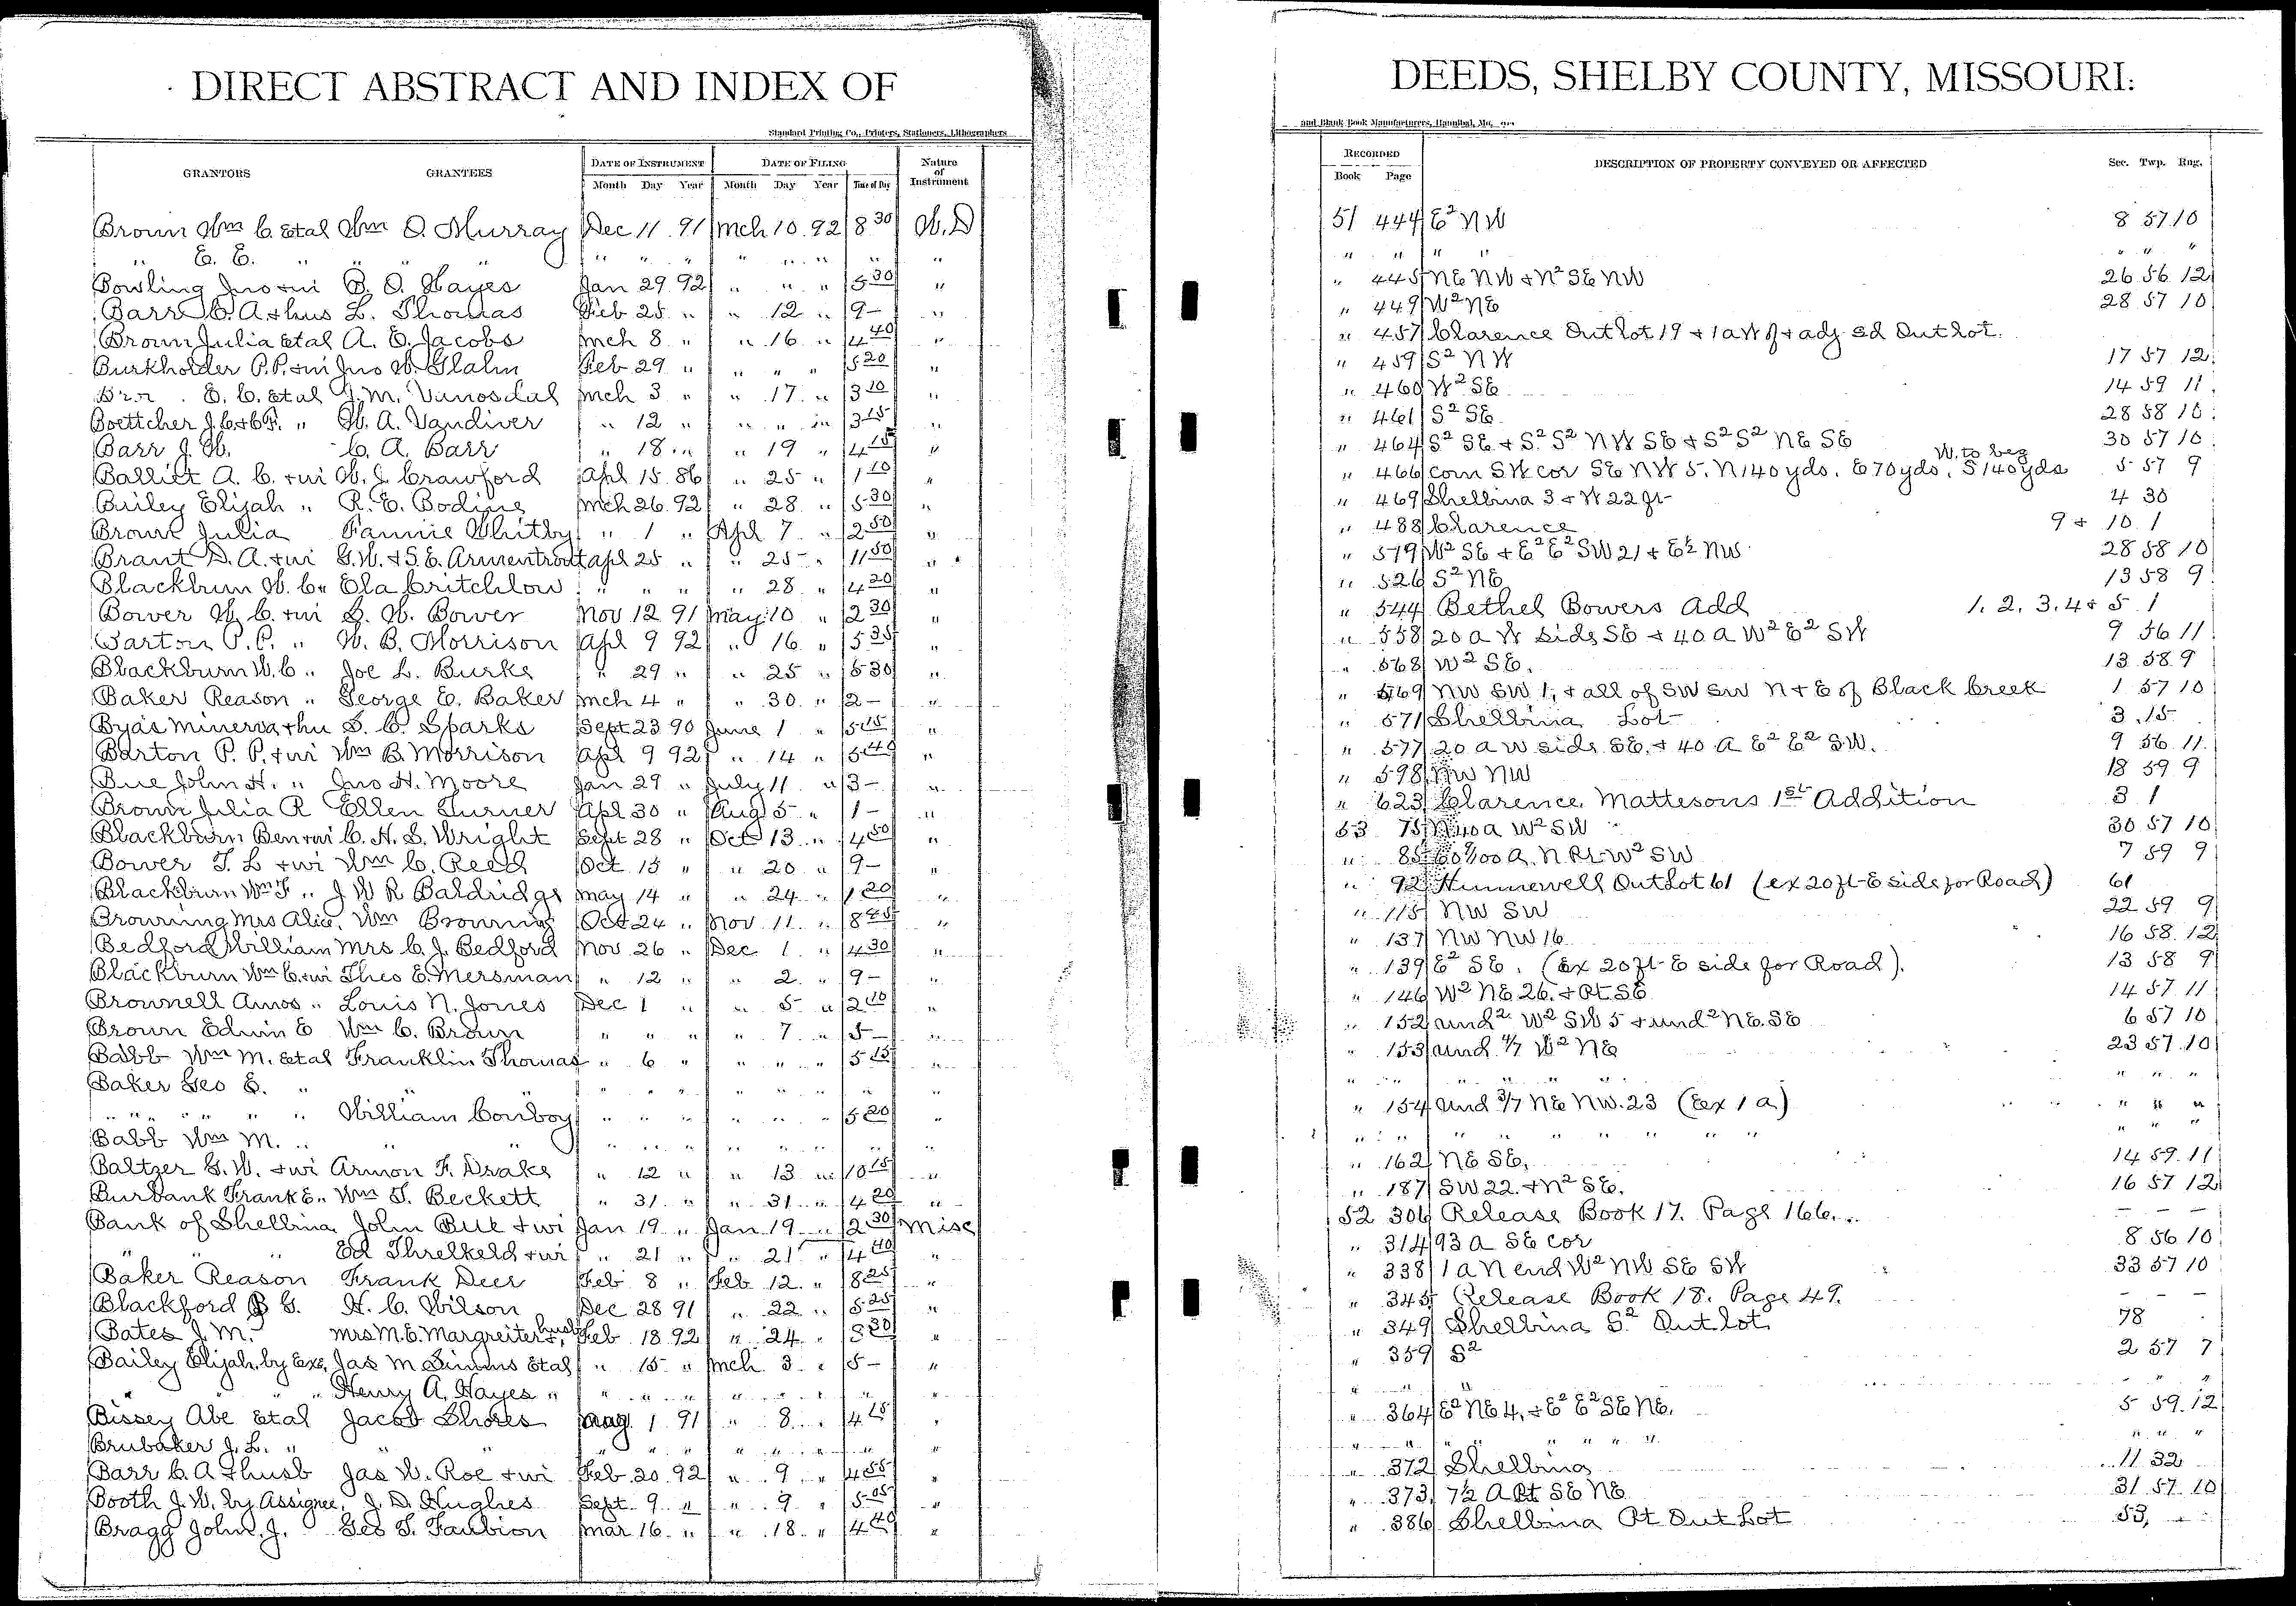 DIRECT ABSTRACT AND INDEX OF
Standard Printing Co., Printers, Stationers, Lithographers
GRANTORS GRANTEES DATE OF INSTRUMENT DATE OF FILING Nature of Instrument
Month Day Year Month Day Year Time of Day
Brown Wm C. etal Wm O. Murray Dec 11 91 Mch 10 92 8 30 W.D
" E. E. " " " " " " " " " "
Bowling Jno + wi B. O. Hayes Jan 29 92 " " " 5 30 "
Barr C. A + hus L. Thomas Feb 25 " " 12 " 9 - "
Brown Julia etal A. E. Jacobs Mch 8 " " 16 " 4 40 "
Burkholder P.P. + wi Jno W. Glahn Feb 29 " " " " 5 20 "
E. C. etal J. M. Vanosdal Mch 3 " " 17 " 3 10 "
Boettcher J. C + C F. " W. A. Vandiver " 12 " " " " 3 15 "
Barr J. W. C. A. Barr " 18 " " 19 " 4 15 "
Balliet A. C. + wi W. J. Crawford Apl 15 86 " 25 " 1 10 "
Briley Elijah " R. E. Bodine Mch 26 92 " 28 " 5 30 "
Brown Julia Fannie Whitby " 1 " Apl 7 " 2 50 "
Brant D. A. + wi G. W. + S. E. Armentrout Apl 25 " " 25 " 11 50 "
Blackburn W. C. " Ela Critchlow " " " " 28 " 4 20 "
Bower W. C. + wi G. W. Bower Nov 12 91 May 10 " 2 30 "
Barton P. P. " W. B. Morrison Apl 9 92 " 16 " 5 35 "
Blackburn W. C " Joe L. Burke " 29 " " 25 " 5 30 "
Baker Reason " George E. Baker Mch 4 " " 30 " 2 - "
Byas Minerva + hu S. C. Sparks Sept 23 90 June 1 " 5 15 "
Barton P. P. + wi Wm B. Morrison Apl 9 92 " 14 " 5 40 "
Bue John H. " Jno H. Moore Jan 29 " July 11 " 3 - "
Brown Julia R Ellen Turner Apl 30 " Aug 5 " 1 - "
Blackburn Ben + wi C. H. S. Wright Sept 28 " Oct 13 " 4 50 "
Bower T. L + wi Wm C. Reed Oct 15 " " 20 " 9 - "
Blackburn Wm F " J W R Baldridge May 14 " " 24 " 1 20 "
Browning Mrs Alice Wm Browning Oct 24 " Nov 11 " 8 45 "
Bedford William Mrs C. J. Bedford Nov 26 " Dec 1 " 4 30 "
Blackburn Wm C. + wi Theo E. Mersman " 12 " " 2 " 9 - "
Brownell Amos " Louis N. Jones Dec 1 " " 5 " 2 10 "
Brown Edwin E Wm C. Brown " " " " 7 " 5 - "
Babb Wm M. etal Franklin Thomas " 6 " " " " 5 15 "
Baker Geo E. " " " " " " " " "
" " " " William Conboy " " " " " " 5 20 "
Babb Wm M. " " " " " " " " " " "
Baltzer G. W. + wi Armon F. Drake " 12 " " 13 " 10 15 "
Burbank Frank E. " Wm T. Beckett " 31 " " 31 " 4 20 "
Bank of Shelbina John Bue + wi Jan 19 " Jan 19 " 2 30 Misc
" " " Ed Threlkeld + wi " 21 " " 21 " 4 40 "
Baker Reason Frank Deer Feb 8 " Feb 12 " 8 25 "
Blackford B G. H. C. Wilson Dec 28 91 " 22 " 5 25 "
Bates J. M. Mrs M. E. Margreiter + husb Feb 18 92 " 24 " 3 30 "
Bailey Elijah by Exe, Jas M Simms etal " 15 " Mch 3 " 5 - "
" " " Henry A. Hayes " " " " " " " " "
Bissey Abe etal Jacob Shores Aug. 1 91 " 8 " 4 25 "
Brubaker J. L. " " " " " " " " " " "
Barr C. A + husb Jas W. Roe + wi Feb 20 92 " 9 " 4 55 "
Booth J. W. by Assignee, J. D. Hughes Sept 9 " " 9 " 5 05 "
Bragg John J. Geo T. Faubion Mar 16 " " 18 " 4 40 "
DEEDS, SHELBY COUNTY, MISSOURI:
and Blank Book Manufacturers, Hannibal, Mo.
RECORDED DESCRIPTION OF PROPERTY CONVEYED OR AFFECTED Sec. Twp. Rng.
Book Page
51 444 E² NW 8 57 10
" " " " " " "
" 445 NE NW + N² SE NW 26 56 12
" 449 W² NE 28 57 10
" 457 Clarence Outlot 19 + 1a W of + adj sd Outlot.
" 459 S² NW 17 57 12
" 460 W² SE 14 59 11
" 461 S² SE 28 58 10
" 464 S² SE + S² S² NW SE + S² S² NE SE 30 57 10
W. to beg
" 466 com SW cor SE NW 5. N 140 yds. E 70 yds. S 140 yds 5 57 9
" 469 Shelbina 3 + W 22 ft 4 30
" 488 Clarence 9 + 10 1
" 519 W² SE + E² E² SW 21 + E½ NW 28 58 10
" 526 S² NE 13 58 9
" 544 Bethel Bowers Add 1. 2. 3. 4 + 5 1
" 558 20 a W side SE + 40 a W² E² SW 9 56 11
" 568 W² SE. 13 58 9
" 569 NW SW 1, + all of SW SW N + E of Black Creek 1 57 10
" 571 Shelbina Lot 3 15
" 577 20 a W side SE. + 40 A E² E² SW. 9 56 11
" 598 NW NW 18 59 9
" 623 Clarence, Mattesons 1st Addition 3 1
53 75 N 40 a W² SW 30 57 10
" 85 60 /100 A. N Pt W² SW 7 59 9
" 92 Hunnewell Outlot 61 (ex 20 ft E side for Road) 61
" 115 NW SW 22 59 9
" 137 NW NW 16 16 58 12
" 139 E² SE. (Ex 20 ft E side for Road). 13 58 9
" 146 W² NE 26. + Pt SE 14 57 11
" 152 und² W² SW 5 + und² NE. SE 6 57 10
" 153 und 4/7 W² NE 23 57 10
" " " " " " " "
" 154 und 3/7 NE NW. 23 (Ex 1 a) " " "
" " " " " " " " " " "
" 162 NE SE. 14 59 11
" 187 SW 22. + N² SE. 16 57 12
52 306 Release Book 17. Page 166. - - -
" 314 93 a SE cor 8 56 10
" 338 1 a N end W² NW SE SW 33 57 10
" 345 Release Book 18. Page 49. - - -
" 349 Shelbina S² Outlot 78
" 359 S² 2 57 7
" " " " " "
" 364 E² NE 4, + E² E² SE NE. 5 59 12
" " " " " " " " "
" 372 Shelbina 11 32
" 373 7½ A Pt SE NE 31 57 10
" 386 Shelbina Pt Out Lot 53,